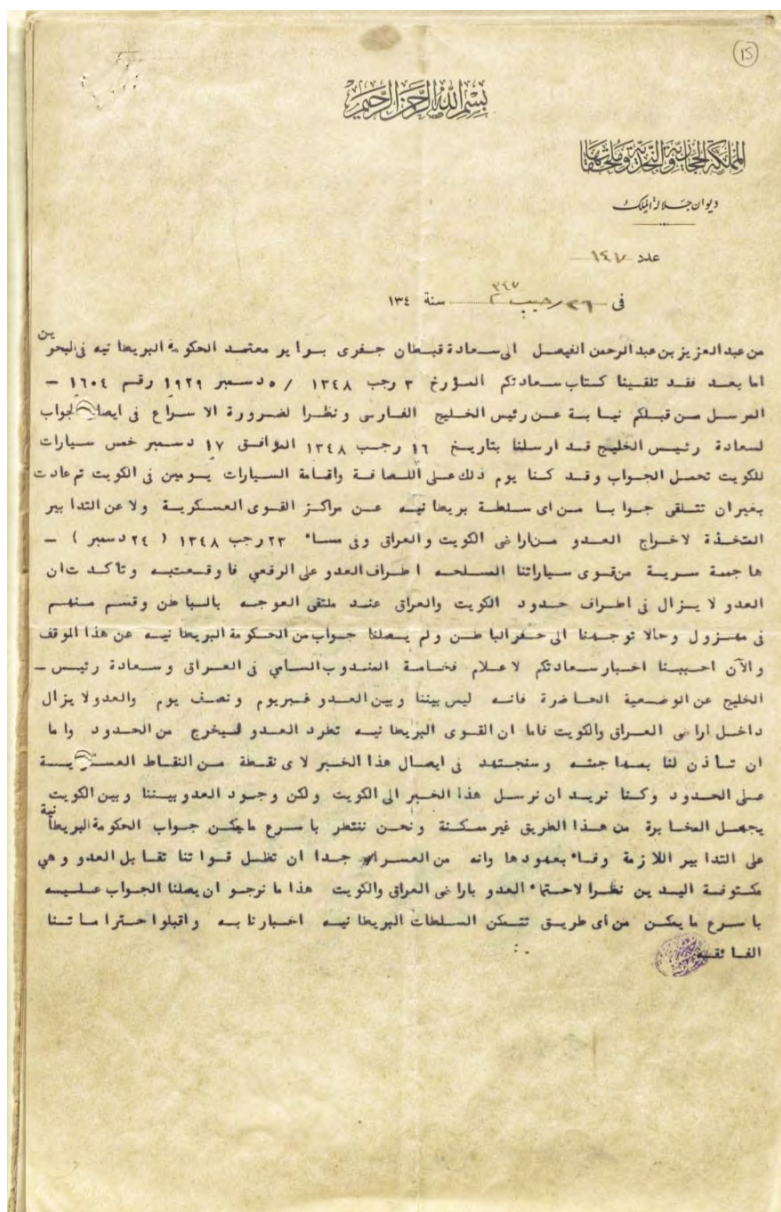 ١٥
بسم الله الرحمن الرحيم
المملكة الحجازية والنجدية وملحقاتها
ديوان جلالة الملك
عدد
في ٢٦ رجب سنة ١٣٤
من عبدالعزيز بن عبدالرحمن الفيصل الى سعادة قبطان جفرى برايو معتمد الحكومة البريطانيه في البحرين
اما بعد فقد تلقينا كتاب سعادتكم المؤرخ ٣ رجب ١٣٤٨ / ٥ دسمبر ١٩٢٩ رقم ١٦٠٤ –
المرسل من قبلكم نيابة عن رئيس الخليج الفارسى ونظرا لضرورة الاسراع فى ايصال الجواب
لسعادة رئيس الخليج قد ارسلنا بتاريخ ١٦ رجب ١٣٤٨ الموافق ١٧ دسمبر خمس سيارات
للكويت تحمل الجواب وقد كنا يوم ذلك على اللصافة واقامة السيارات يومين فى الكويت ثم عادت
بغيران تتلقى جوابا من اى سلطة بريطانيه عن مراكز القوى العسكرية ولا عن التدابير
المتخذة لاخراج العدو من اراضى الكويت والعراق وفى مساء ٢٣ رجب ١٣٤٨ ( ٢٤ دسمبر ) –
هاجمة سرية من قوى سياراتنا المسلحه اطراف العدو على الرقعي فاوقعت به وتاكدت ان
العدو لا يزال فى اطراف حدود الكويت والعراق عند ملتقى العوجه بالباطن وقسم منهم
فى مهزول وحالا توجهنا الى حفر الباطن ولم يصلنا جواب من الحكومة البريطانيه عن هذا الموقف
والآن احببنا اخبار سعادتكم لاعلام فخامة المندوب السامي فى العراق وسعادة رئيس –
الخليج عن الوضعية الحاضرة فانه ليس بيننا وبين العدو غير يوم ونصف يوم والعدو لا يزال
داخل اراضى العراق والكويت فاما ان القوى البريطانيه تطرد العدو فيخرج من الحدود واما
ان تأذن لنا بمهاجمته وسنجتهد فى ايصال هذا الخبر لاى نقطة من النقاط العسكرية
على الحدود وكنا نريد ان نرسل هذا الخبر الى الكويت ولكن وجود العدو بيننا وبين الكويت
يجعل المخابرة من هذا الطريق غير ممكنة ونحن ننتظر باسرع مايمكن جواب الحكومة البريطانية
على التدابير اللازمة وفاء بعهودها وانه من العسر جدا ان تظل قواتنا تقابل العدو وهي
مكتوفة اليدين نظرا لاحتماء العدو باراضى العراق والكويت هذا ما نرجو ان يصلنا الجواب عليه
باسرع ما يمكن من اى طريق تتمكن السلطات البريطانيه اخبارنا به واقبلوا احتراماتنا
الفائقه